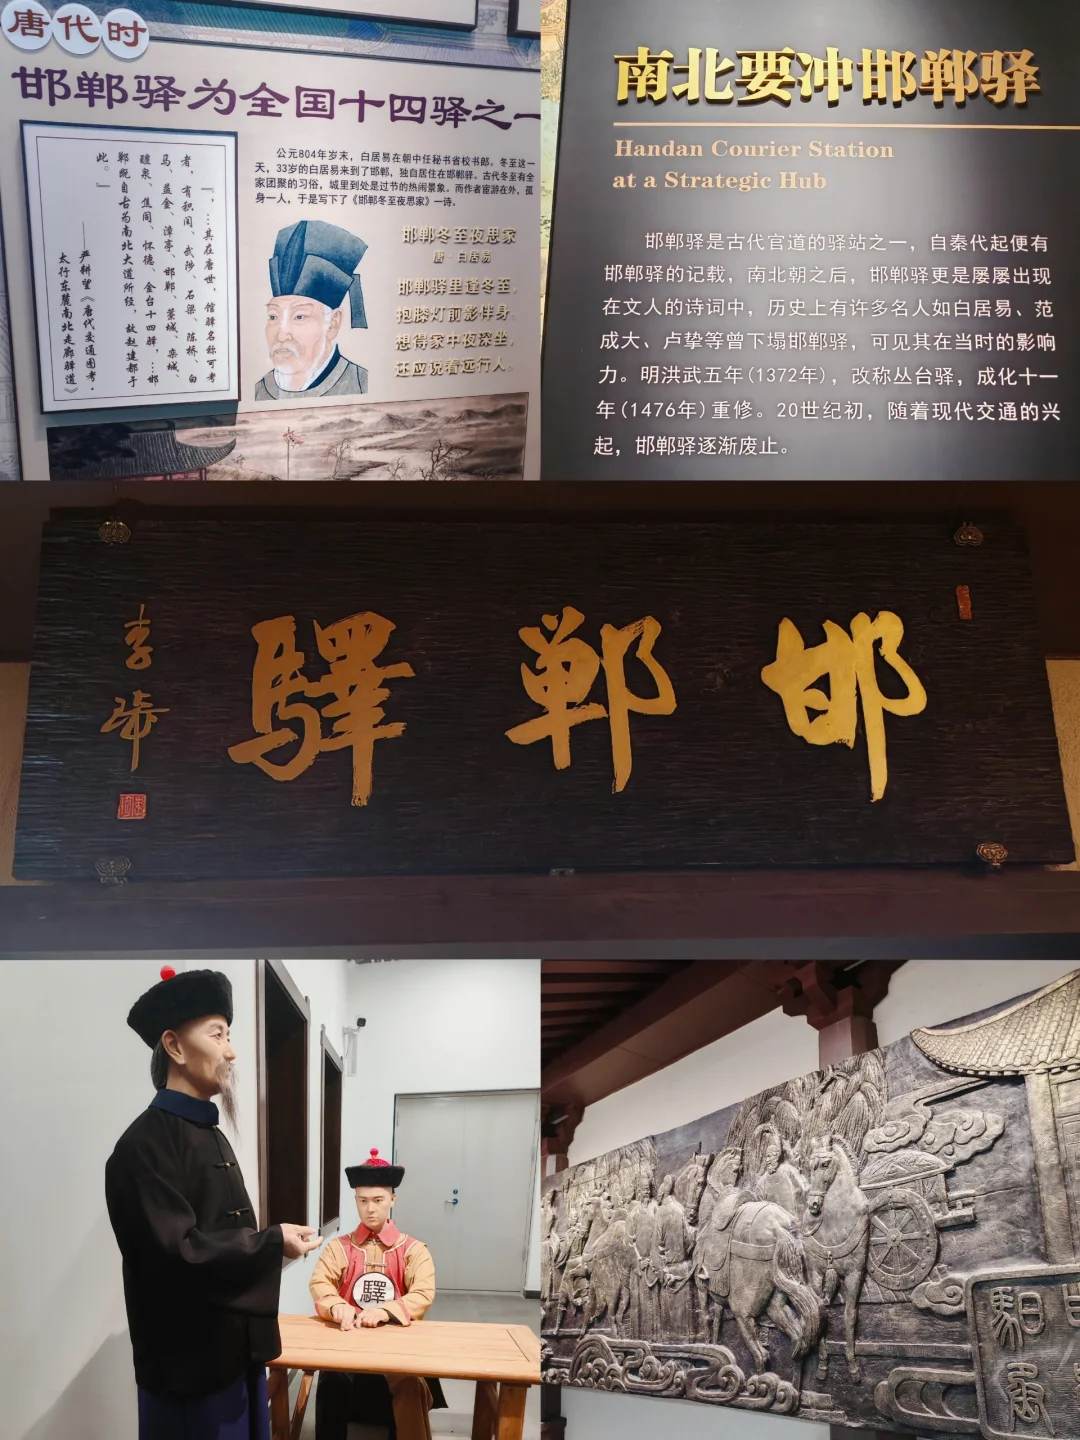 唐代时
邯郸驿为全国十四驿之一
『…其在唐世，馆驿名称可考
者，有积润、武陟、石梁、陈桥、白
马、蓝金、漳亭、邯郸、藁城、栾城、
醴泉、焦同、怀德、金台十四驿，…邯
郸既自古为南北大道所经，故赵建都于
此。』
——严耕望《唐代交通图考·
太行东麓南北走廊驿道》
公元804年岁末，白居易在朝中任秘书省校书郎。冬至这一
天，33岁的白居易来到了邯郸，独自居住在邯郸驿。古代冬至有全
家团聚的习俗，城里到处是过节的热闹景象。而作者宦游在外，孤
身一人，于是写下了《邯郸冬至夜思家》一诗。
邯郸冬至夜思家
唐·白居易
邯郸驿里逢冬至，
抱膝灯前影伴身。
想得家中夜深坐，
还应说着远行人。
南北要冲邯郸驿
Handan Courier Station
at a Strategic Hub
邯郸驿是古代官道的驿站之一，自秦代起便有
邯郸驿的记载，南北朝之后，邯郸驿更是屡屡出现
在文人的诗词中，历史上有许多名人如白居易、范
成大、卢挚等曾下塌邯郸驿，可见其在当时的影响
力。明洪武五年(1372年)，改称丛台驿，成化十一
年(1476年)重修。20世纪初，随着现代交通的兴
起，邯郸驿逐渐废止。
邯鄲驛
驛